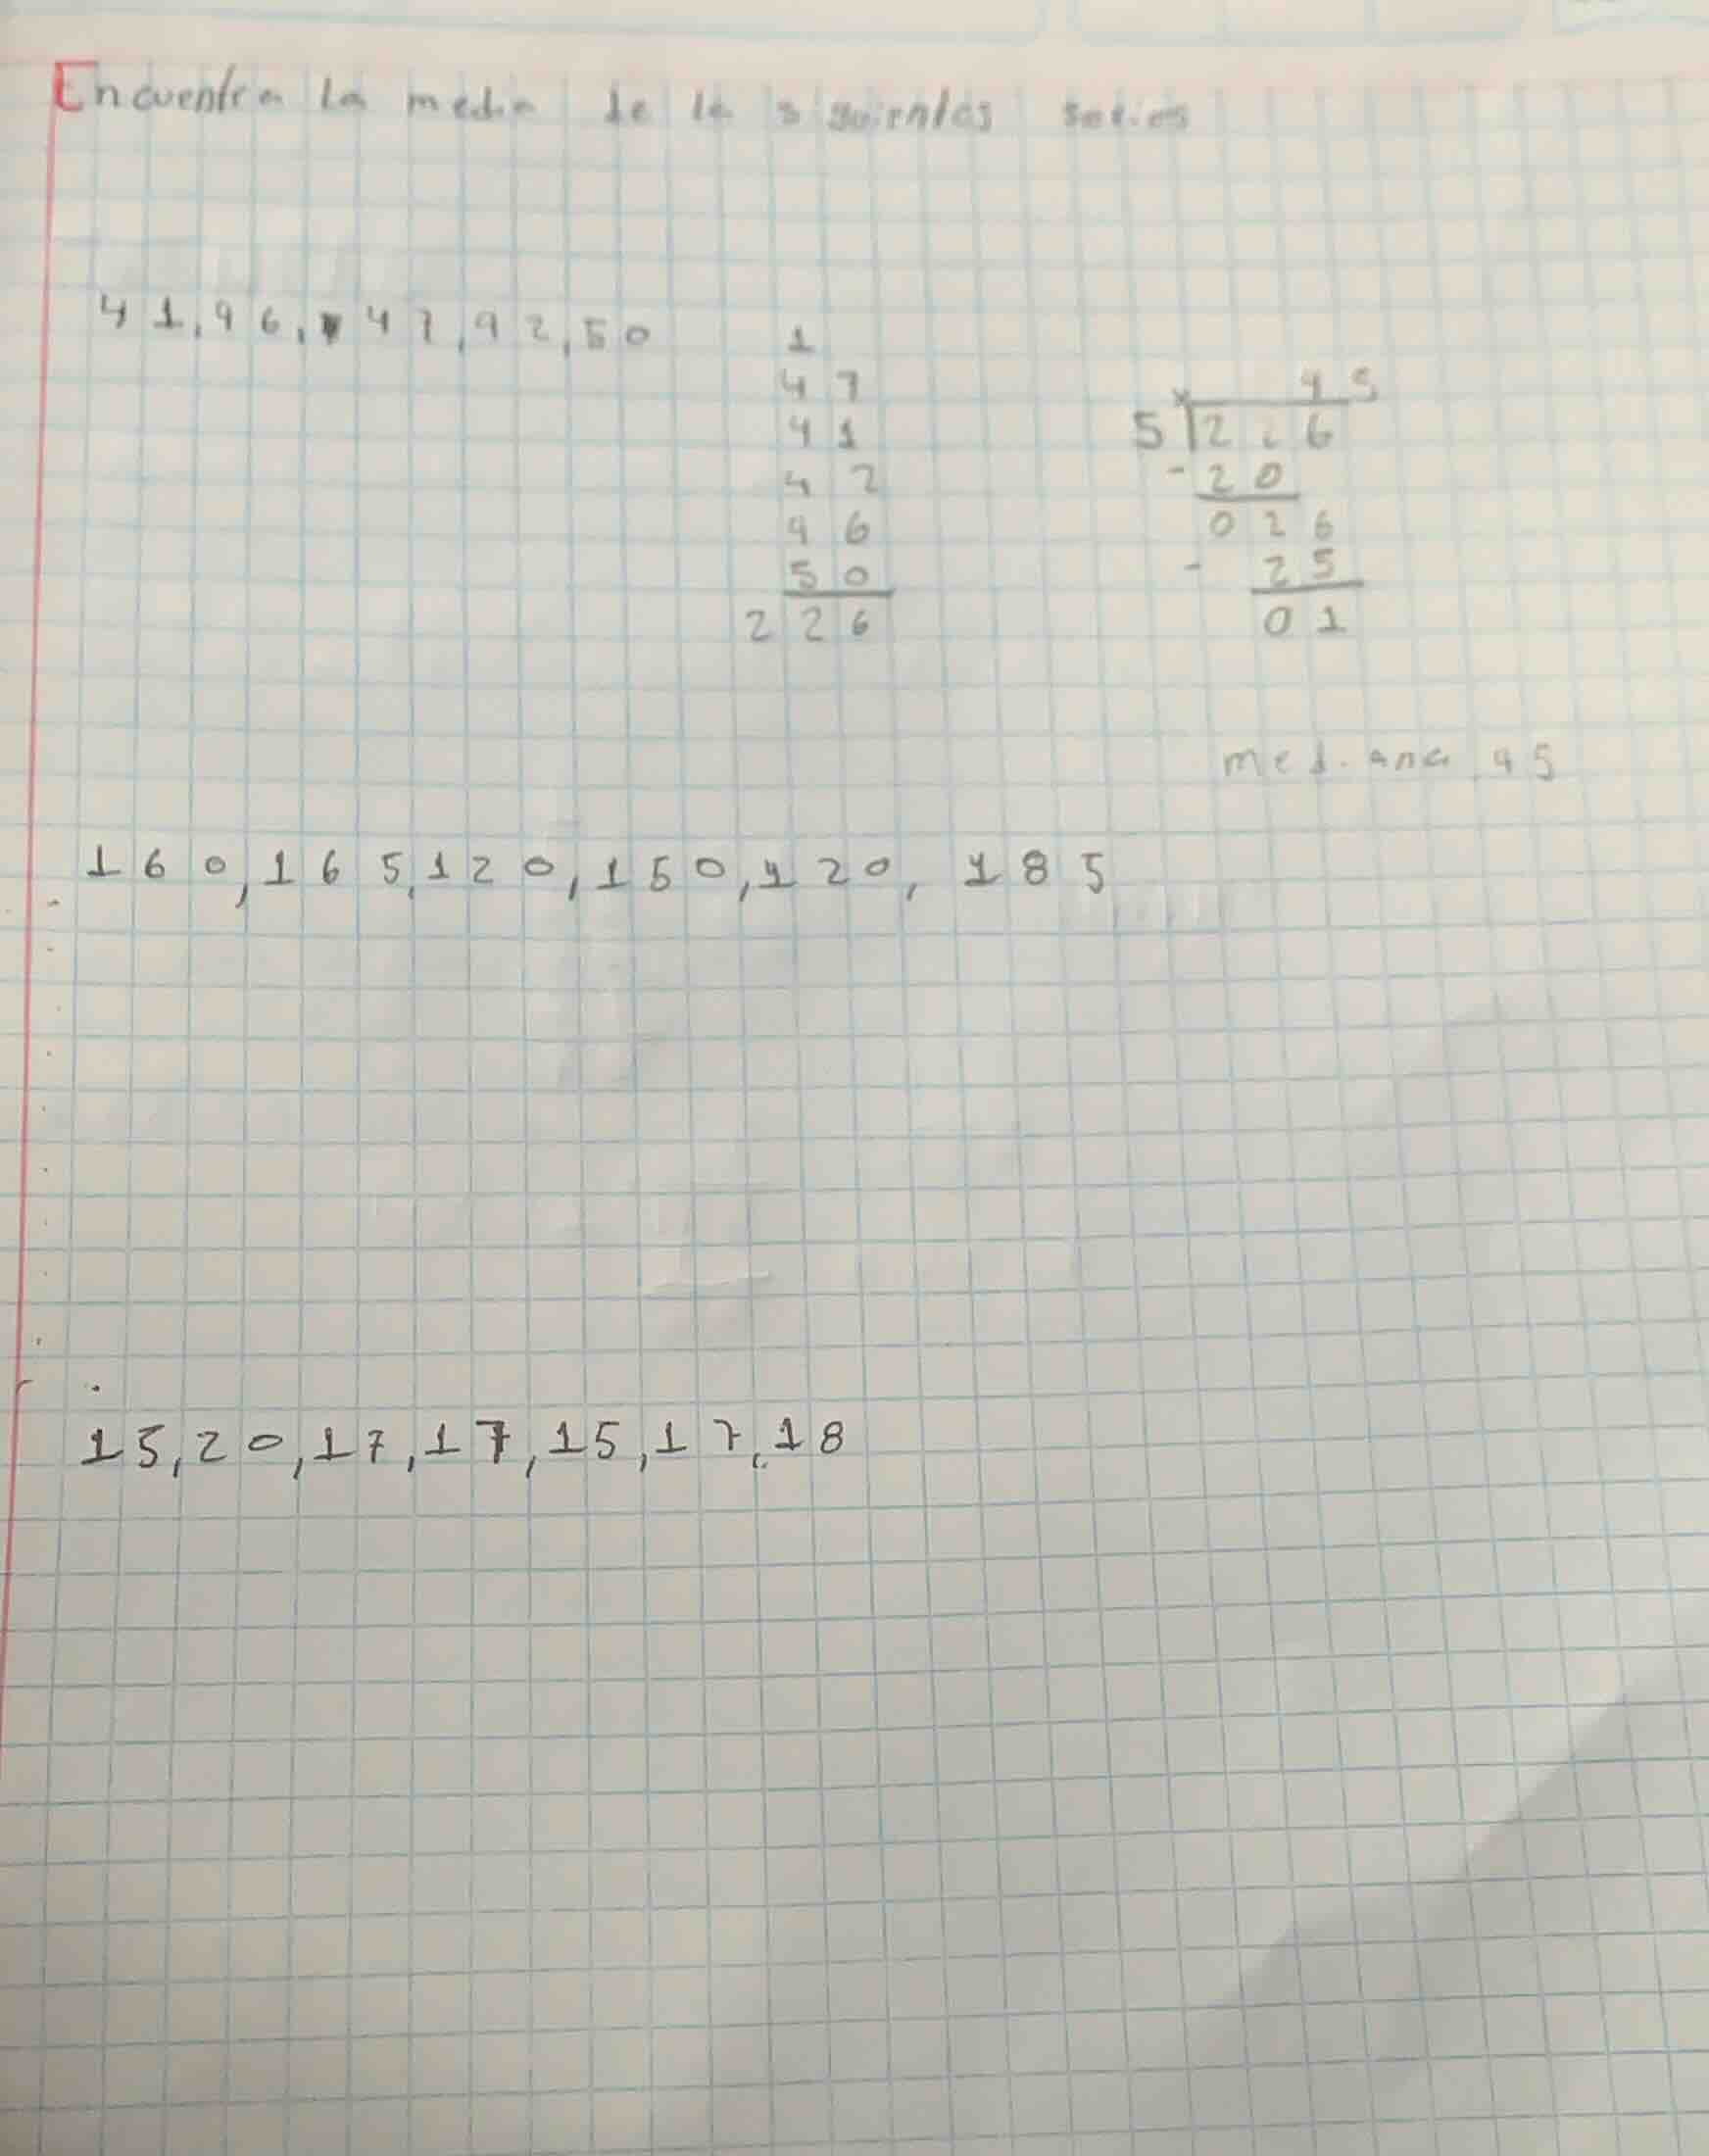 Encuentra la media de la siguientes series
41,46,47,42,50
1
47
41
42
46
50
226
45
5 226
-20
026
- 25
01
mediana 45
160,165,120,150,120, 185
15,20,17,17,15,17,18